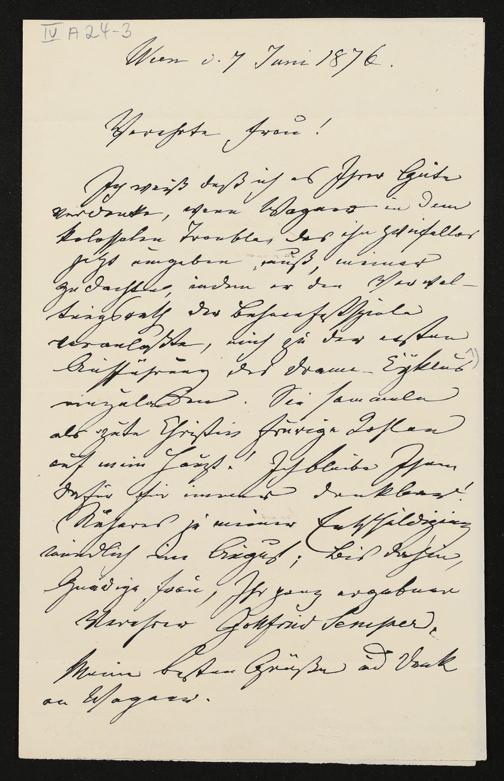 IV A 24-3
Wien d. 7 Juni 1876.
Verehrte Frau!
Ich weiß daß ich es Ihrer Güte
verdanke, wenn Wagner in dem
kolossalen Trouble, der ihn zweifellos
jetzt umgeben muß, meiner
gedachte, indem er den Verwal-
tungsrath der Bühnenfestspiele
veranlaßte, mich zu der ersten
Aufführung des Drama-Cyklus
einzuladen. Sie sammeln
als gute Christin feurige Kohlen
auf mein Haupt! Ich bleibe Ihnen
dafür für immer dankbar!
Näheres zu meiner Entschuldigung
mündlich im August; bis dahin,
Gnädige Frau, Ihr ganz ergebener
Verehrer Gottfried Semper.
Meine besten Grüße und Dank
an Wagner.